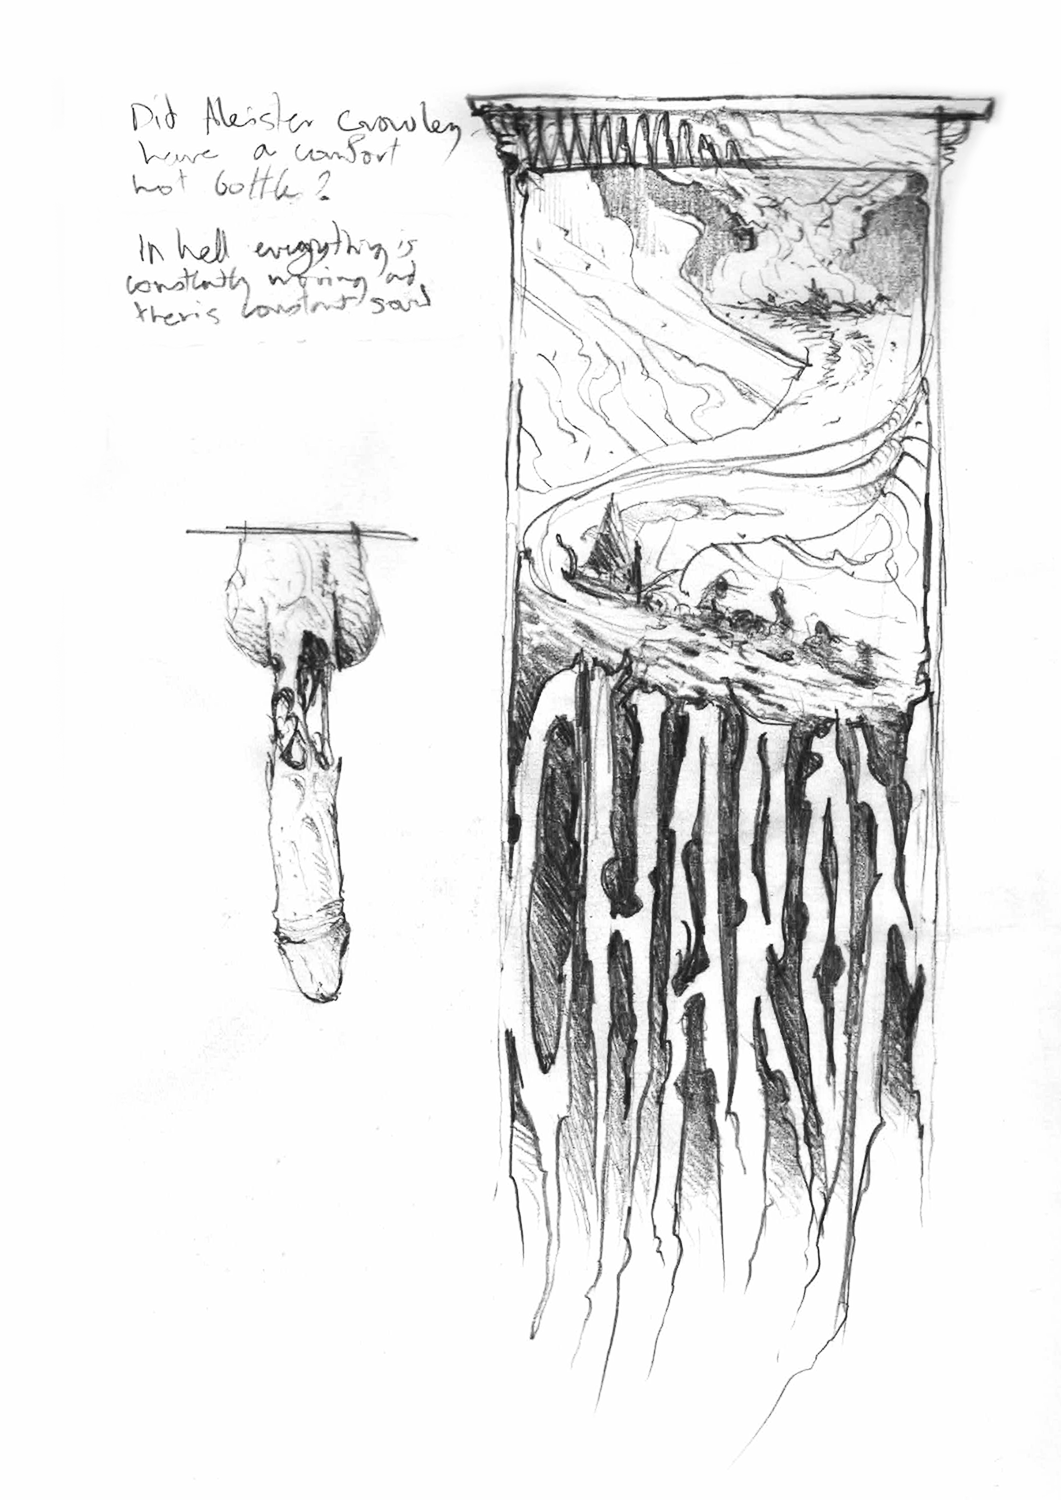 Did Aleister Crowley
have a comfort
hot bottle?
In hell everything is
constantly moving and
ther is constant